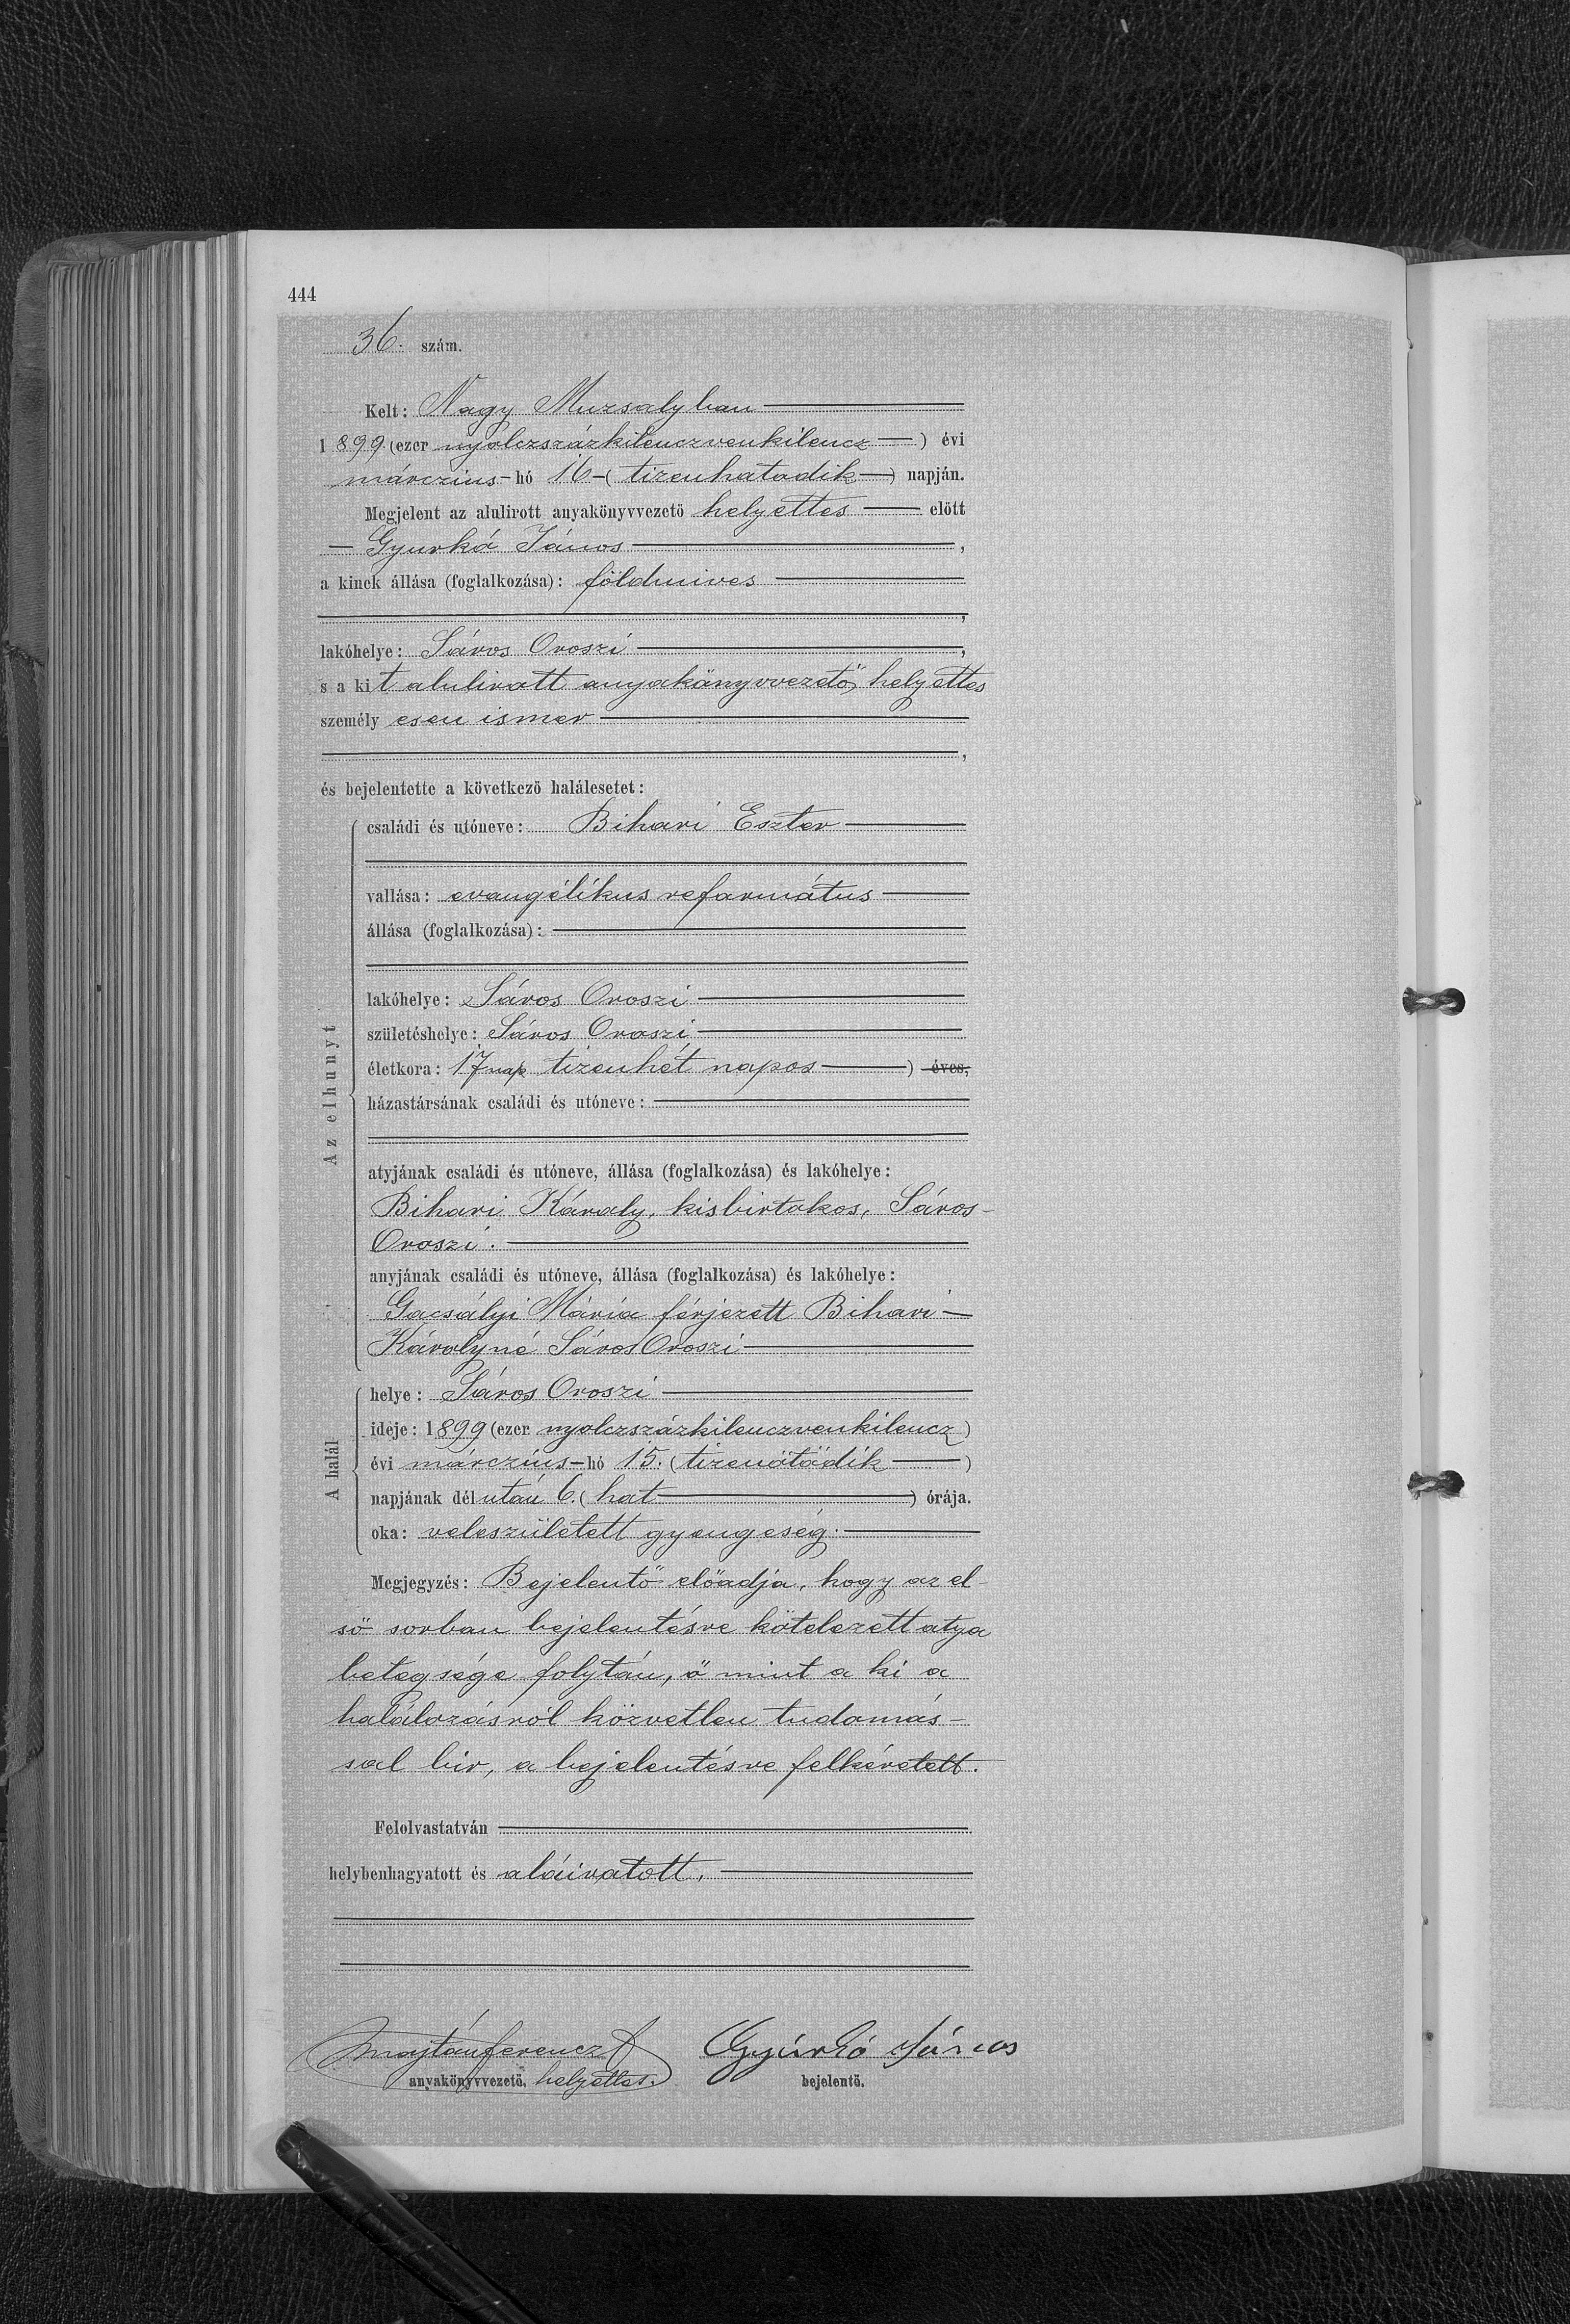 444
36. szám.
Kelt: Nagy Muzsalyban
1899 (ezer nyolczszázkilenczvenkilencz) évi
márczius hó 16 (tizenhatodik) napján.
Megjelent az alulirott anyakönyvvezető helyettes előtt
Gyurkó János,
a kinek állása (foglalkozása): földmives
,
lakóhelye: Sáros Oroszi,
s a kit alulirott anyakönyvvezető helyettes
személy esen ismer
,
és bejelentette a következő halálesetet:
Az elhunyt
családi és utóneve: Bihari Eszter
vallása: evangélikus református
állása (foglalkozása):
lakóhelye: Sáros Oroszi
születéshelye: Sáros Oroszi
életkora: 17 nap tizenhét napos) éves,
házastársának családi és utóneve:
atyjának családi és utóneve, állása (foglalkozása) és lakóhelye:
Bihari Károly, kisbirtokos, Sáros-
Oroszi.
anyjának családi és utóneve, állása (foglalkozása) és lakóhelye:
Gacsályi Mária férjezett Bihari
Károlyné Sáros Oroszi
A halál
helye: Sáros Oroszi
ideje: 1899 (ezer nyolczszázkilenczvenkilencz)
évi márczius hó 15. (tizenötödik)
napjának délután 6. (hat) órája.
oka: veleszületett gyengeség.
Megjegyzés: Bejelentő előadja, hogy az el-
ső sorban bejelentésre kötelezett atya
betegsége folytán, ő mint a ki a
halálozásról közvetlen tudomás-
sal bir, a bejelentésre felkéretett.
Felolvastatván
helybenhagyatott és aláiratott.
Majtán Ferencz Gyúrkó János
anyakönyvvezető. helyettes. bejelentő.